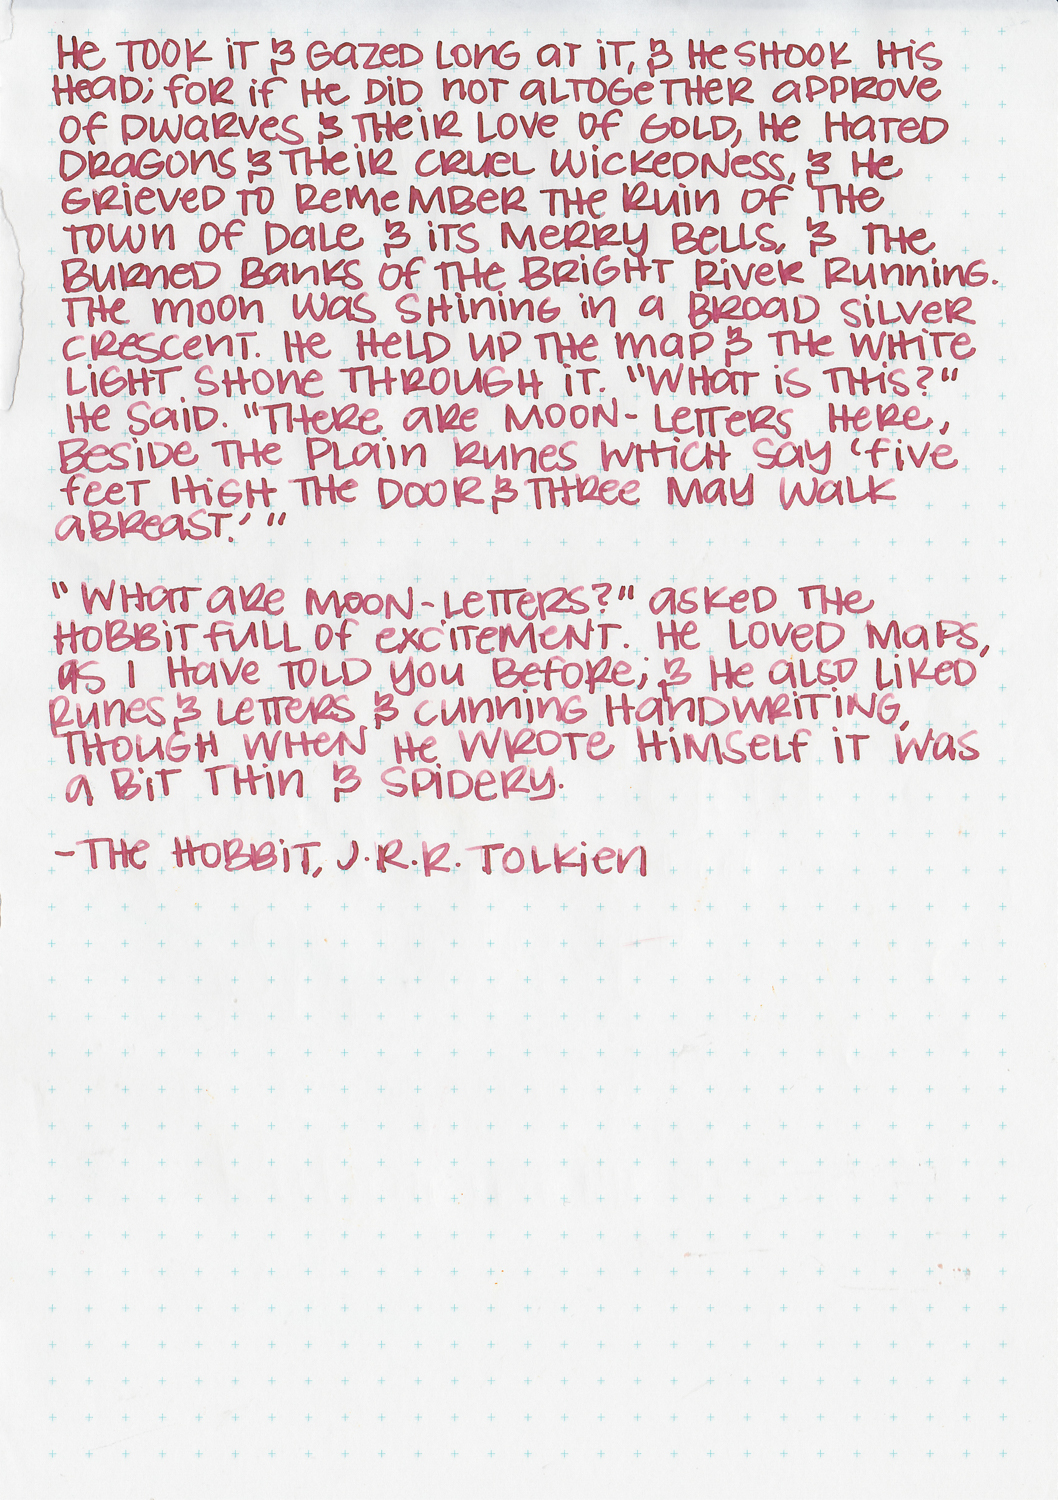 He took it & gazed long at it, & he shook his
head; for if he did not altogether approve
of dwarves & their love of gold, he hated
dragons & their cruel wickedness, & he
grieved to remember the ruin of the
town of Dale & its merry bells, & the
burned banks of the bright River Running.
The moon was shining in a broad silver
crescent. He held up the map & the white
light shone through it. "What is this?"
he said. "There are moon-letters here,
beside the plain runes which say 'five
feet high the door & three may walk
abreast.' "
"What are moon-letters?" asked the
hobbit full of excitement. He loved maps,
as I have told you before; & he also liked
runes & letters & cunning handwriting,
though when he wrote himself it was
a bit thin & spidery.
-The Hobbit, J.R.R. Tolkien